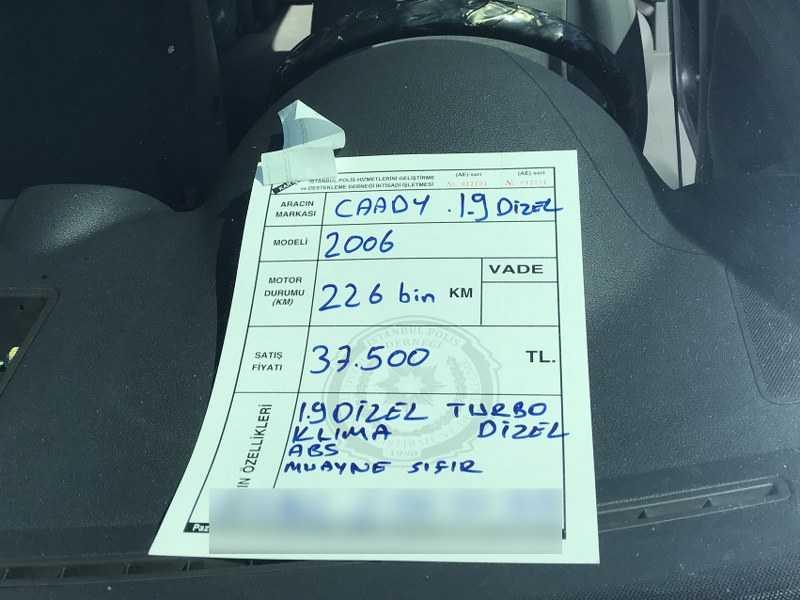 İSTANBUL POLİS HİZMETLERİNİ GELİŞTİRME
ve DESTEKLEME DERNEĞİ İKTİSADİ İŞLETMESİ
(AE) seri
(AE) seri
ARACIN MARKASI
CAADY .1.9 DİZEL
MODELİ
2006
MOTOR DURUMU (KM)
226 bin KM
VADE
SATIŞ FİYATI
37.500 TL.
İSTANBUL POLİS
DERNEĞİ
1990
IN ÖZELLİKLERİ
1.9 DİZEL TURBO
KLIMA DİZEL
ABS
MUAYNE SIFIR
Paz